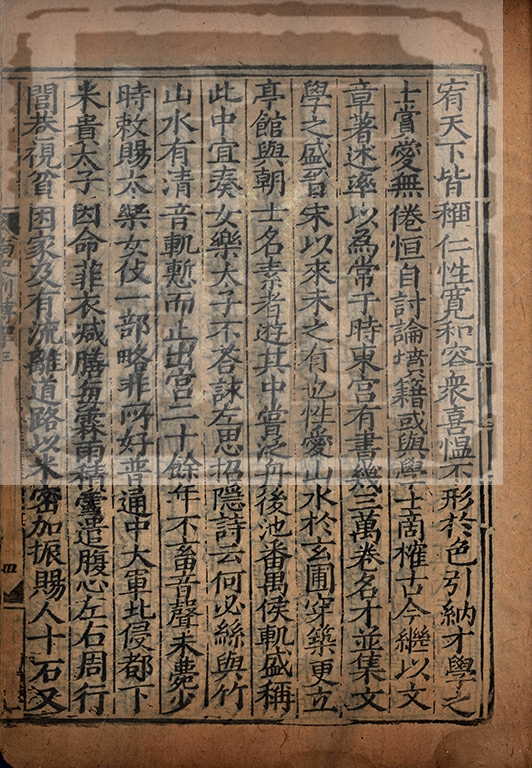 宥天下皆稱仁性寬和容衆喜愠不形於色引納才學之
士賞愛無倦恒自討論墳籍或與學士商榷古今繼以文
章著述率以為常于時東宮有書幾三萬卷名才並集文
學之盛晉宋以來未之有也性愛山水於玄圃穿築更立
亭館與朝士名素者遊其中嘗泛舟後池番禺侯軌盛稱
此中宜奏女樂太子不荅詠左思招隱詩云何必絲與竹
山水有清音軌慙而止出宮二十餘年不畜音聲未薨少
時敕賜太樂女伎一部略非所好普通中大軍北侵都下
米貴太子因命菲衣減膳每霖雨積雪遣腹心左右周行
閭巷視貧困家及有流離道路以米密加振賜人十石又